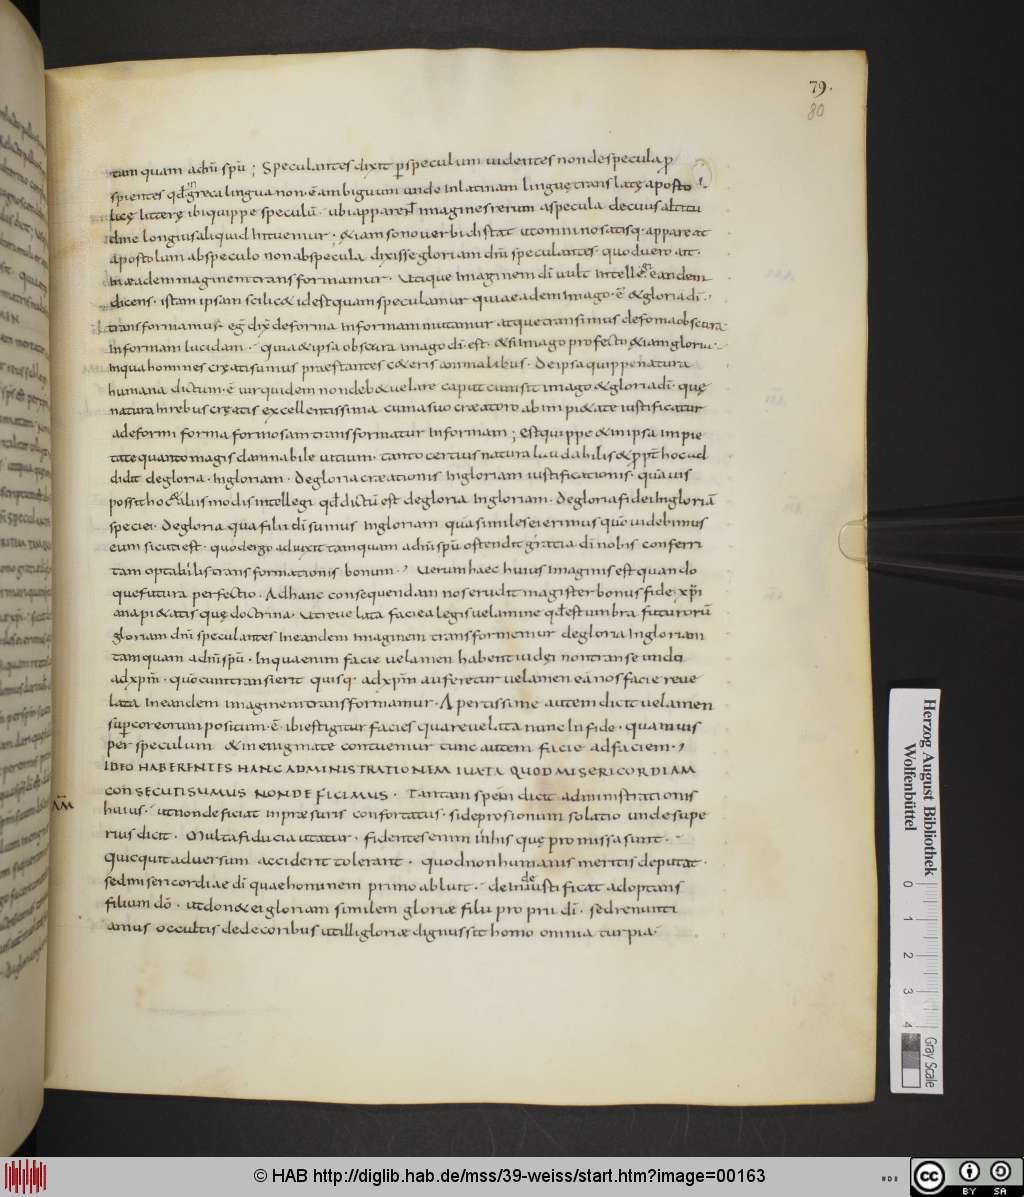 79.
80
tam quam adnī spū ; Speculantes dixit p speculum uidentes non de specula p
spicientes qđ greca lingua non ē ambiguum unde in latinam linguę translatę aposto
licę litterę ibi quippe speculū ubi apparent imagines rerum a specula de cuius altitu
dine longius aliquid intuemur · & iam sono uerbi distat ut omnino satisq· appareat
apostolum ab speculo non ab specula dixisse gloriam dnī speculantes · quod uero ait ·
in eadem imaginem transformamur · Utique imaginem dī uult intellegi eandem
dicens · istam ipsam scilic& id est quam speculamur quia eadem imago · ē & gloria dī ·
transformamur · de forma in formam mutamur atque transimus de forma obscura
in formam lucidam · quia & ipsa obscura imago dī est · & si imago profecto & iam gloria ·
in qua homines creati sumus praestantes c&eris animalibus · De ipsa quippe natura
humana dictum · ē uir quidem non deb& uelare caput cum sit imago & gloria dī · quę
natura in rebus creatis excellentissima cum a suo creatore ab impi&ate iustificatur
a deformi forma formosam transformatur in formam ; Est quippe & in ipsa impie
tate quanto magis damnabile uitium · tanto certius natura laudabilis & ppt hoc ad
didit de gloria · in gloriam · De gloria creationis in gloriam iustificationis · quāuis
possit hoc & aliis modis intellegi qđ dictū est de gloria in gloriam · De gloria fidei in gloriā
speciei · De gloria qua filii dī sumus in gloriam qua similes ei erimus quō uidebimus
eum sicuti est · quod ergo adiuxit tam quam adnī spū ostendit gratia dī nobis conferri
tam optabilis transformationis bonum · Uerum haec huius imaginis est quando
que futura perfectio . Ad hanc consequendam nos erudit magister bonus fide xpī
ana pi&atis quę doctrina · Ut reuelata facie a legis uelamine qđ est umbra futurorū
gloriam dnī speculantes in eandem imaginem transformemur de gloria in gloriam
tam quam adnī spū · In qua enim facie uelamen habent iudęi non transeundo
ad xpm̄ · quō cum transierit quisq· ad xpm̄ auferetur uelamen ea nos facie reue
lata in eandem imaginem transformamur · Apertissime autem dicit uelamen
sup cor eorum positum · ē · ibi estigitur facies qua reuelata nunc in fide · quamuis
per speculum & in enigmate contuemur tunc autem facie ad faciem ·
IDEO HABENTES HANC ADMINISTRATIONEM IUXTA QUOD MISERICORDIAM
CONSECUTI SUMUS NON DEFICIMUS · Tantam spem dicit administrationis
huius · ut non deficiat in praesuris confortatus · sidepresionum solatio unde supe
rius dicit · Multa fiducia utatur · fidentes enim in his quę promissa sunt ·
Quicquit aduersum acciderit tolerant · quod non humanis meritis deputat ·
sed misericordiae dī quae hominem primo abluit · deinde iustificat adoptans
filium dō · ut don& ei gloriam similem gloriæ filii proprii dī · sed renunti
amus occultis dedecoribus ut illi gloriæ dignus sit homo omnia turpia ·
Herzog August Bibliothek
Wolfenbüttel
0 1 2 3 4
Gray Scale
© HAB http://diglib.hab.de/mss/39-weiss/start.htm?image=00163
cc BY SA